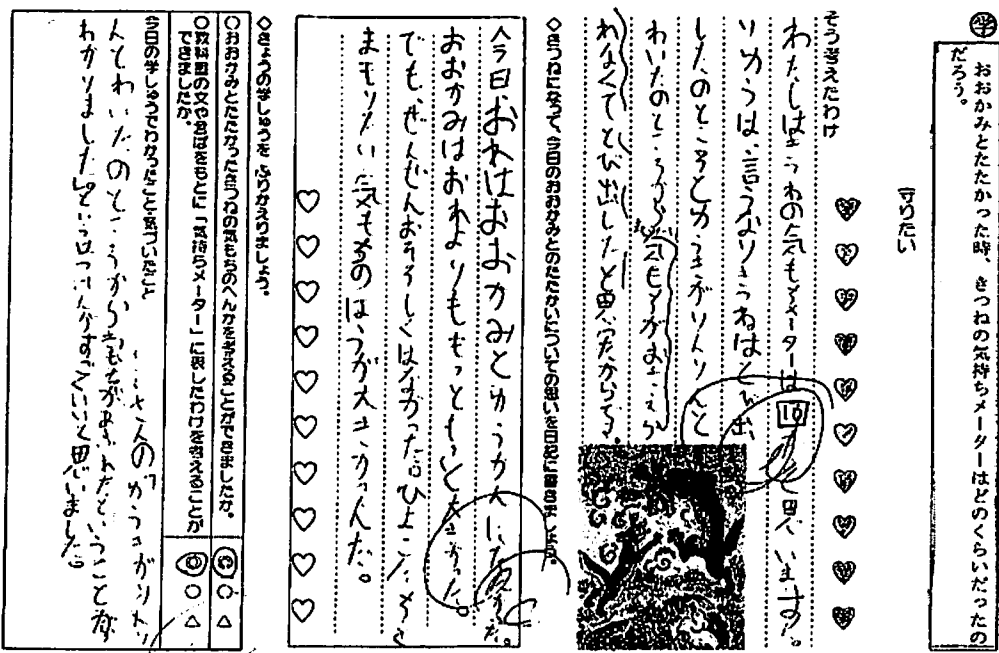 学
おおかみとたたかった時、きつねの気持ちメーターはどのくらいだったの
だろう。
守りたい
そう考えたわけ
わたしはきつねの気もちメーターは10だと思います。
りゆうは、言うなりきつねはとび出
したのところとゆうきがりんりんと
わいたのところから気もちがおさえら
れなくてとび出したと思ったからです。
◇きつねになって、今日のおおかみとのたたかいについての思いを日記に書きましょう。
今日おれはおおかみとゆうかんに
おおかみはおれよりももっともっと大きかった。
でもぜんぜんおそろしくはなかった。ひよこたちを
まもりたい気もちのほうが大きかったんだ。
◇きょうの学しゅうを ふりかえりましょう。
○おおかみとたたかったきつねの気もちのへんかを考えることができましたか。
◎ ○ △
○教科書の文や言葉をもとに「気持ちメーター」に表したわけを考えることが
できましたか。
◎ ○ △
今日の学しゅうでわかったこと・気づいたこと
さんの「ゆうきがりんり
んとわいたのところから気もちがあふれたということが
わかりました。」という
すごくいいと思いました。